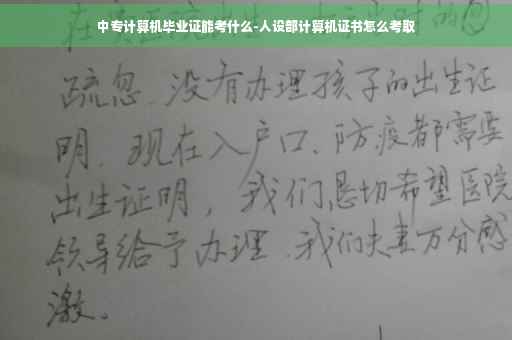 中专计算机毕业证能考什么-人设部计算机证书怎么考取
疏忽、没有办理孩子的出生证
明、现在入户口、防疫都需要
出生证明，我们恳切希望医院
领导给予办理、我们夫妻万分感
激。